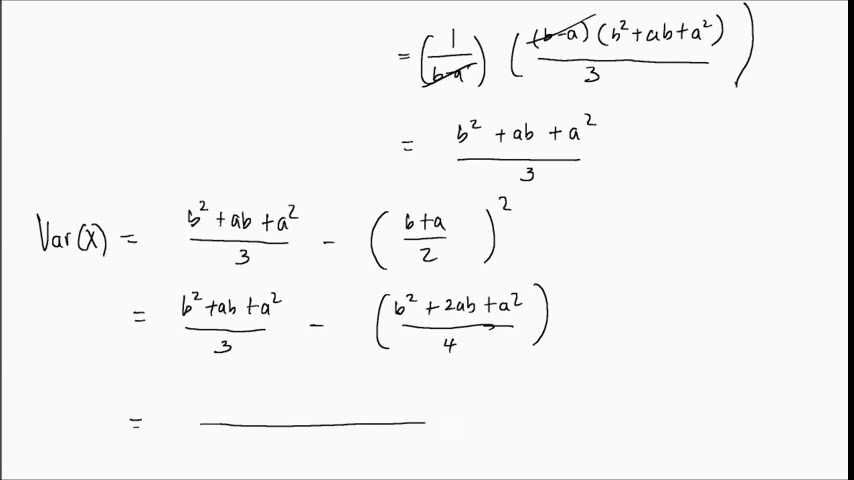 = (1/(b-a)) ((b-a)(b²+ab+a²)/3)
= (b² + ab + a²)/3
Var(X) = (b² + ab + a²)/3 - ((b+a)/2)²
= (b² + ab + a²)/3 - ((b² + 2ab + a²)/4)
=